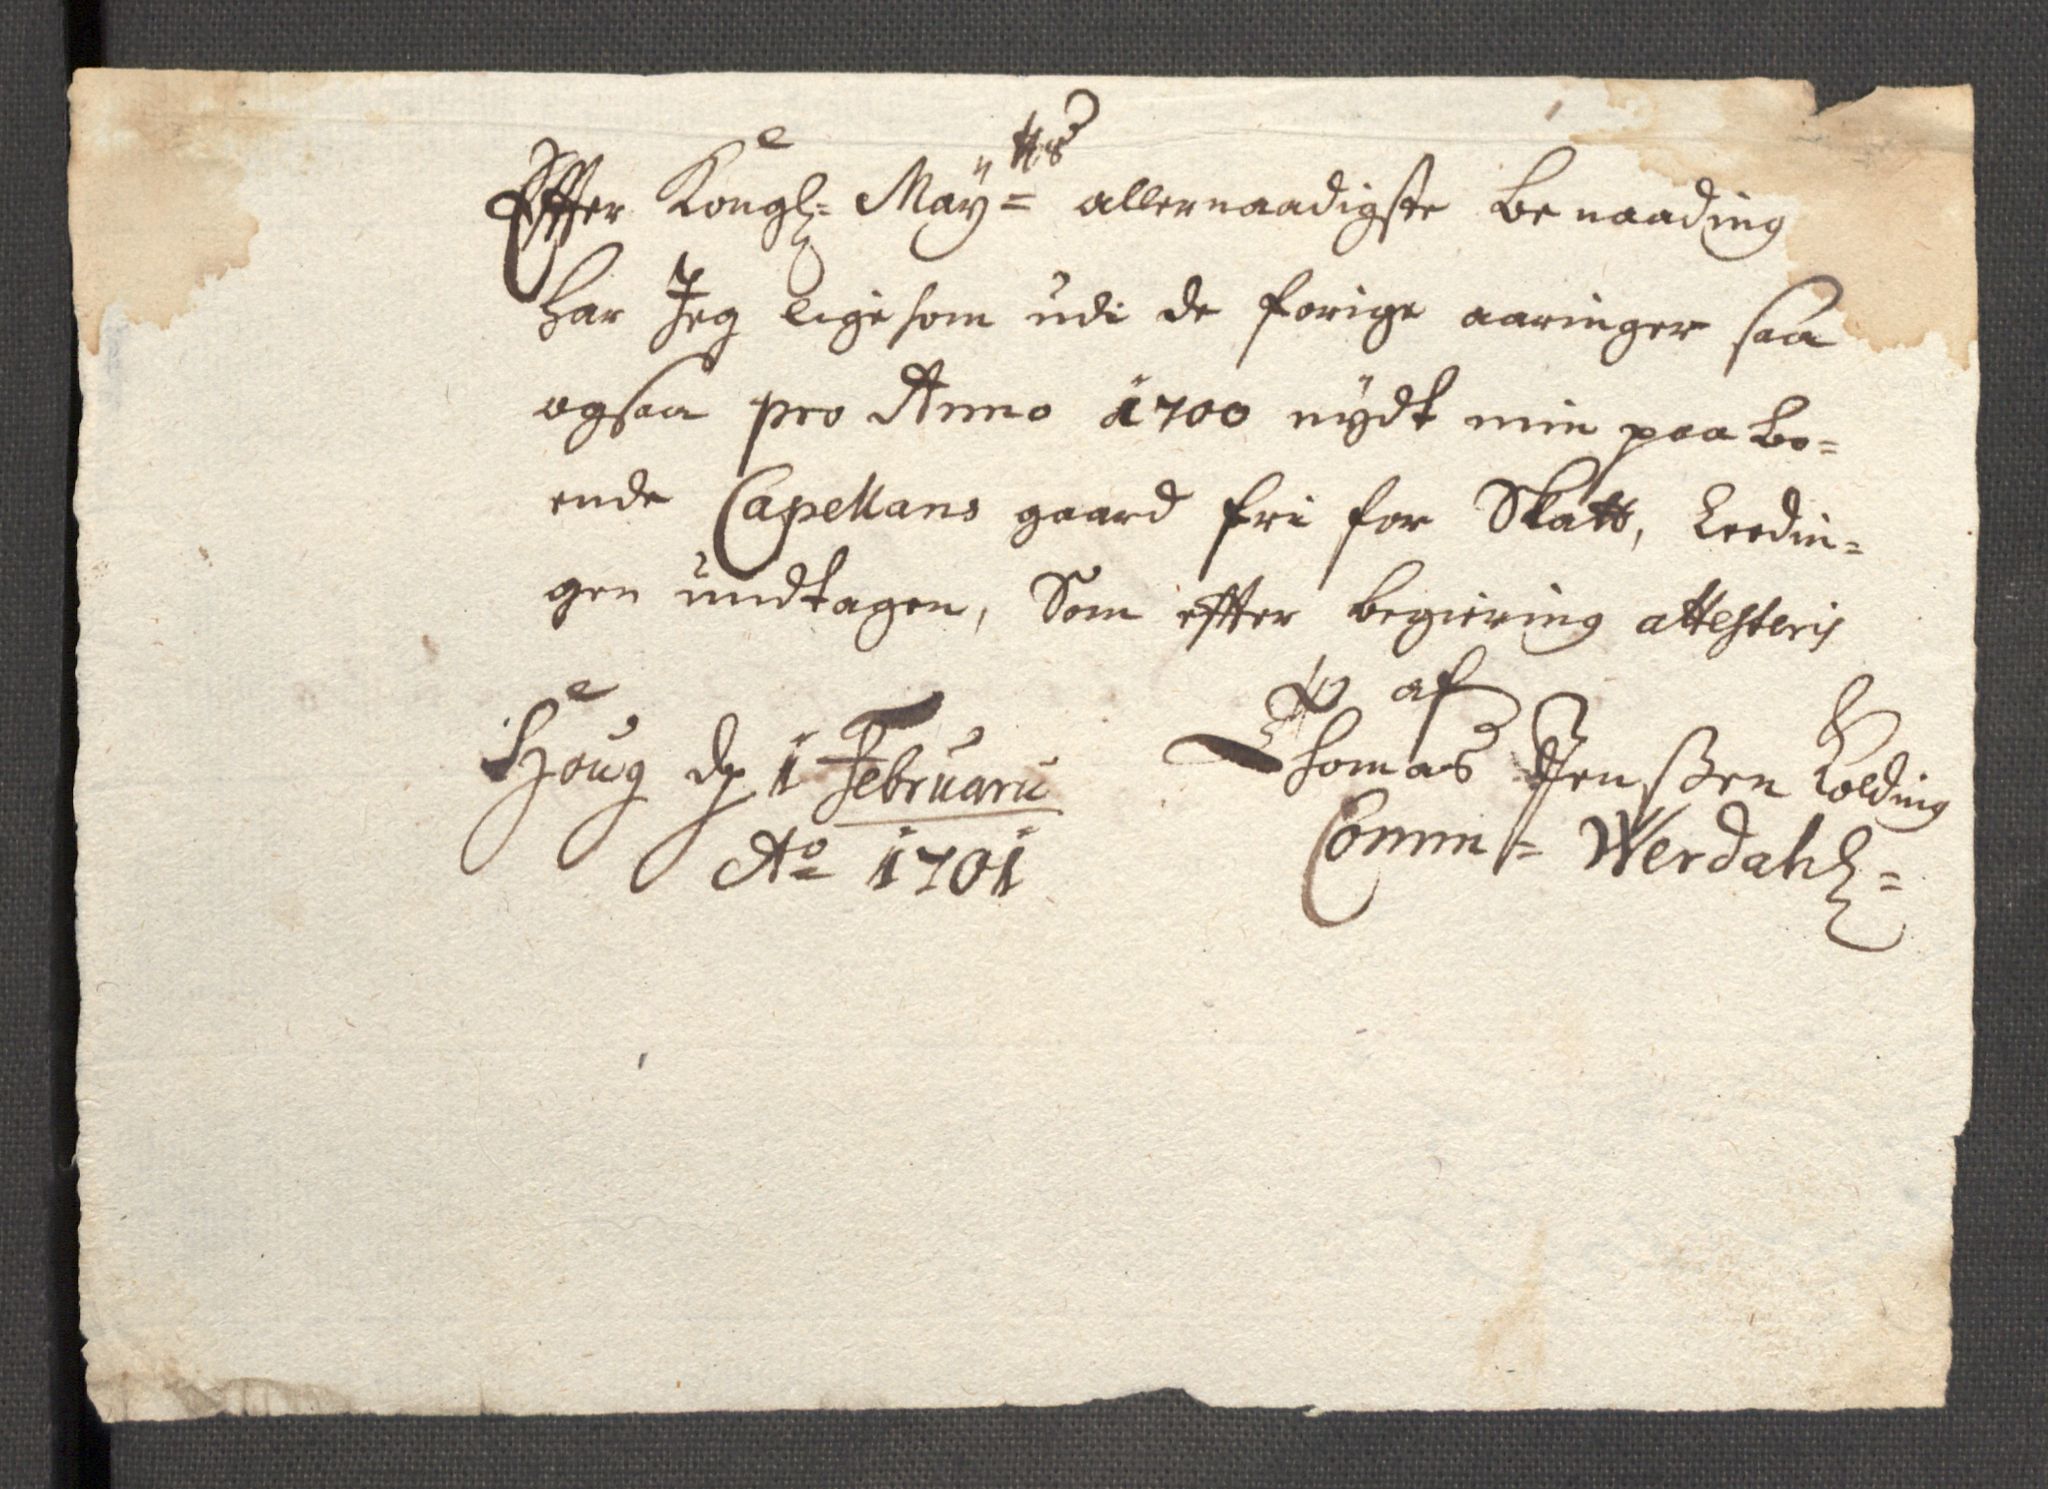 Effter Kongl: Maÿ=tts allernaadigste Benaading
har Jeg ligesom udi de forige aaringer saa
ogsaa pro Anno 1700 nÿdt min paa boe=
ende Capellans gaard fri for Skatt, Leedin=
gen undtagen, Som effter begiering attesteris
af
Houg dn 1 Februarii Thomas Jenssen Kolding
Ao 1701 Comm= Werdahl=